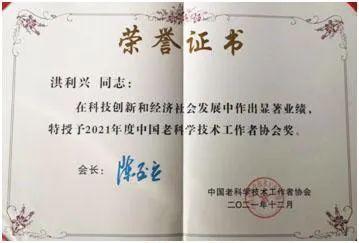 荣誉证书
洪利兴 同志：
在科技创新和经济社会发展中作出显著业绩，
特授予2021年度中国老科学技术工作者协会奖。
会长：
中国老科学技术工作者协会
二〇二一年十二月